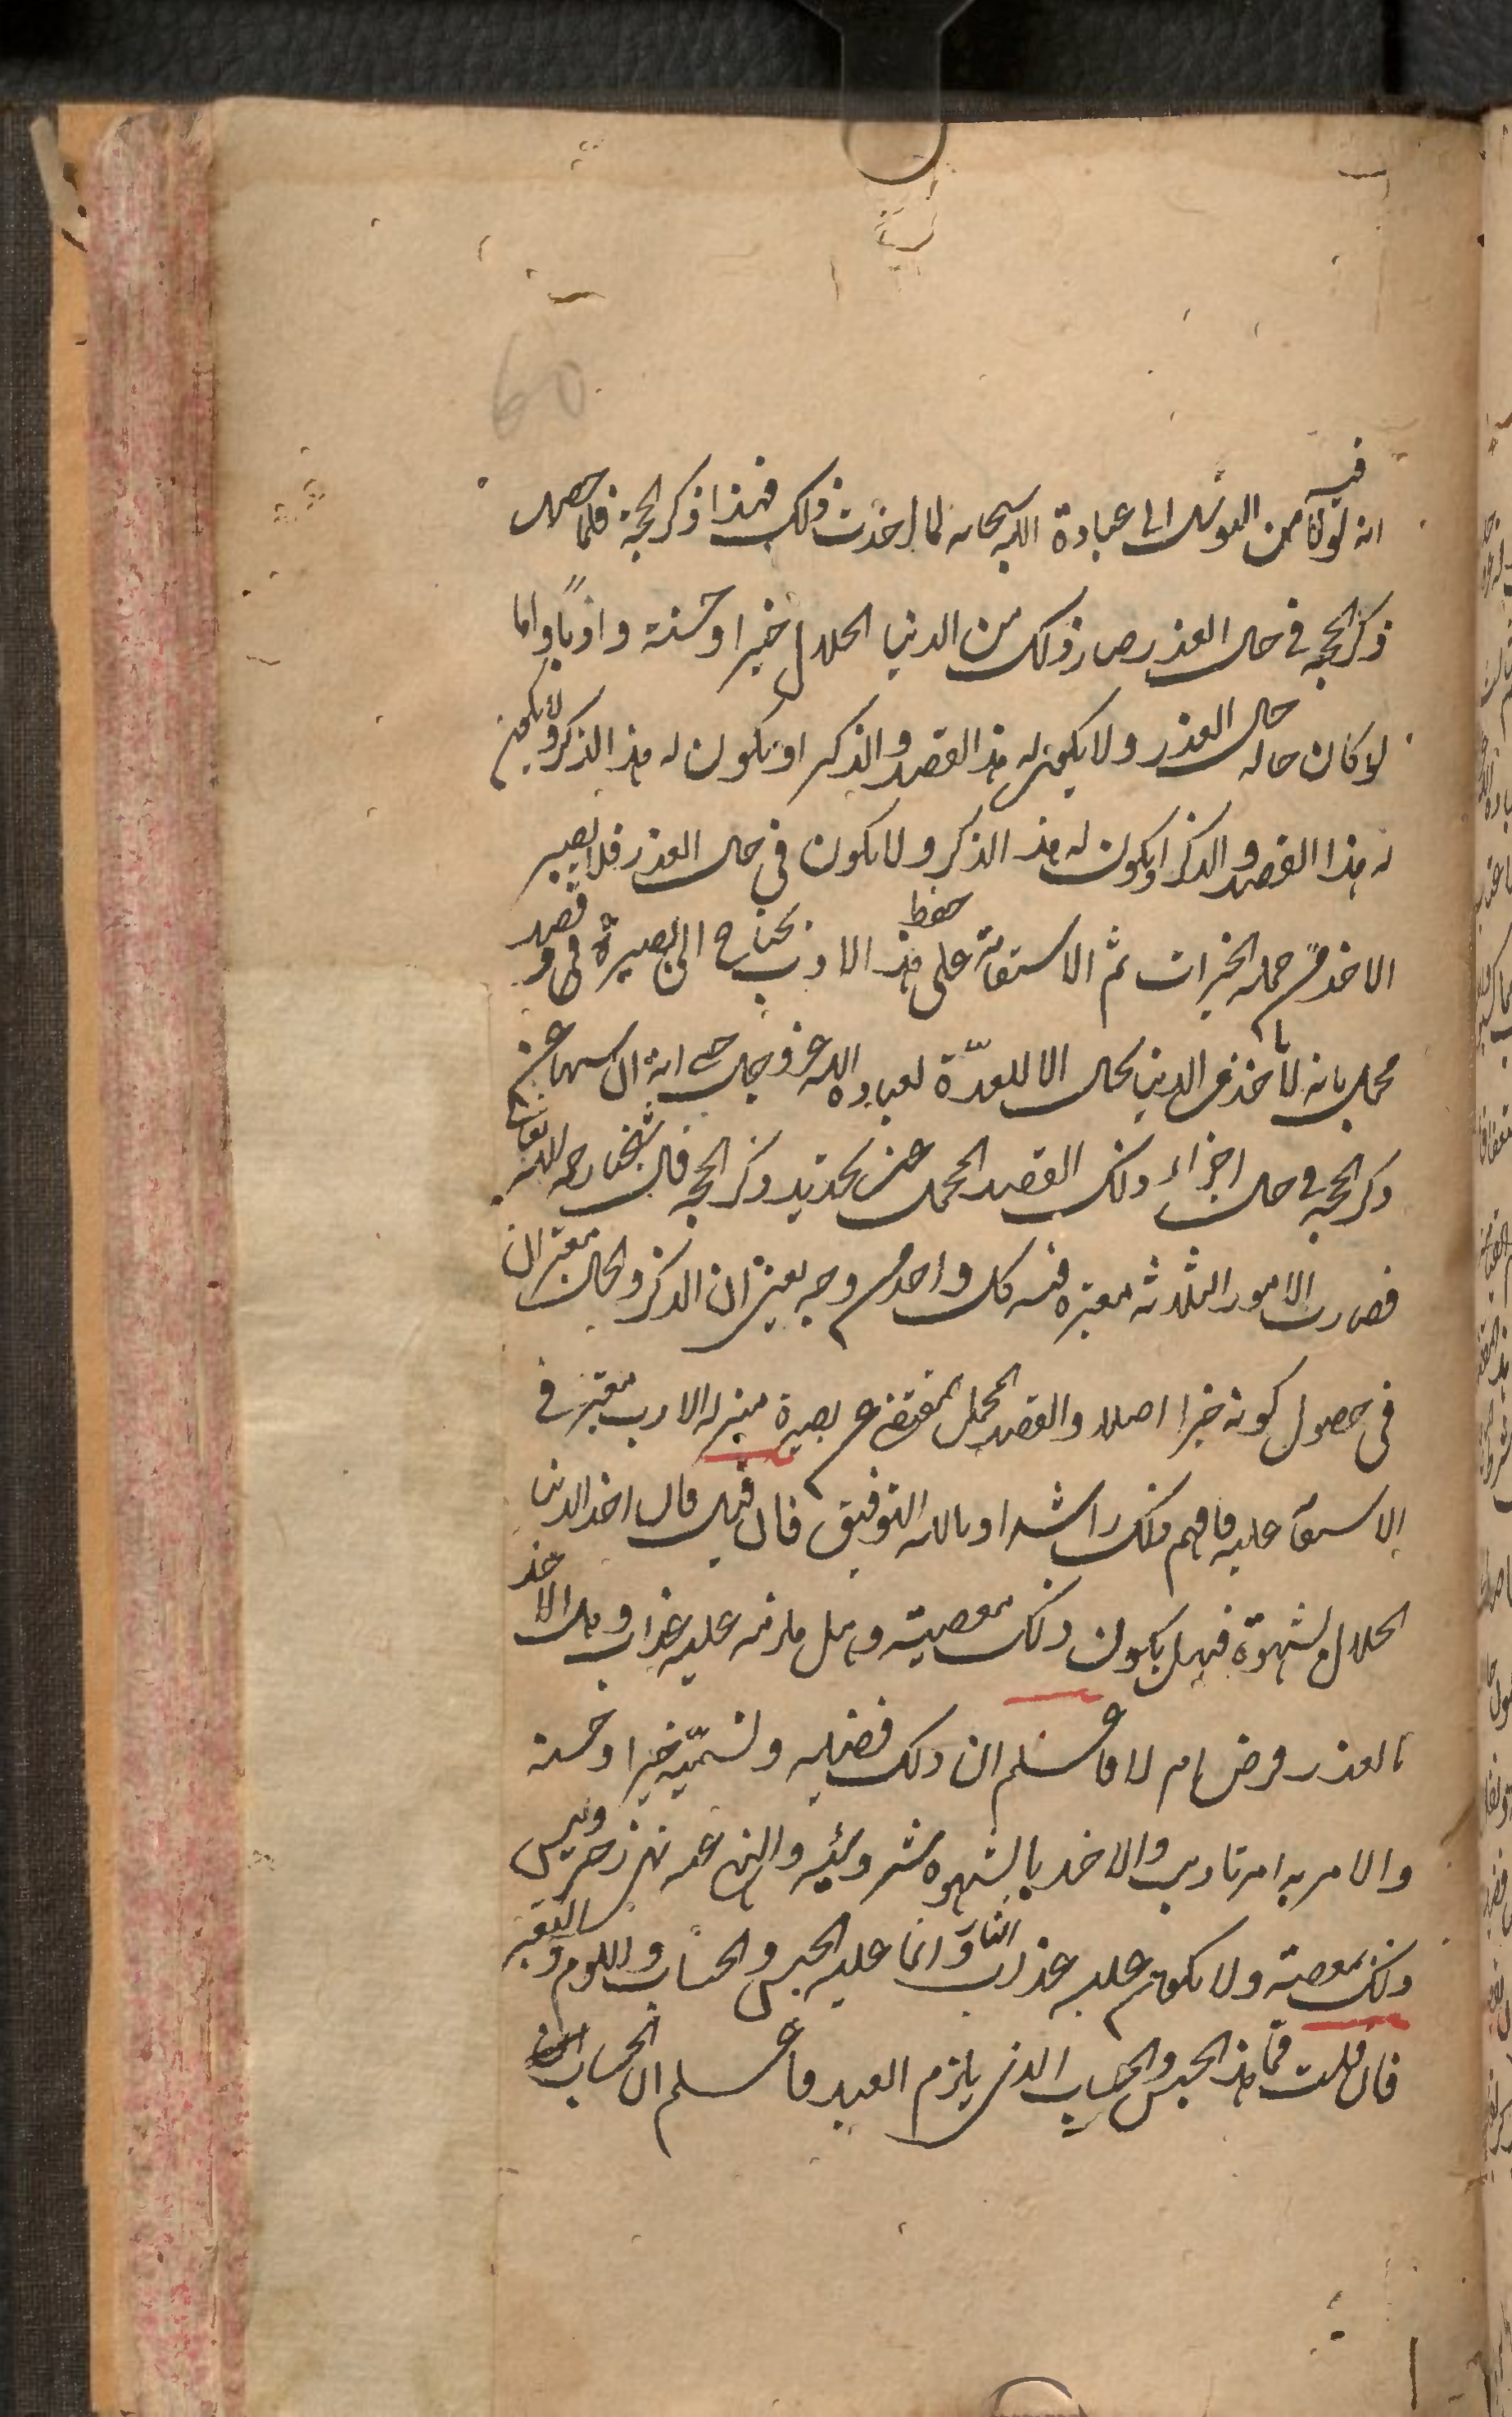 60
انه لولا ما فيه من التوسل الى عبادة الله سبحانه لما اخذت ذلك فهذا ذكر الحجة فلما حصل
ذكر الحجة في حال العذر صار ذلك من الدنيا الحلال خيرا وحسنة وادبا واما
لو كان حاله حال العذر ولا يكون له هذا القصد والذكر او يكون له هذا الذكر ولا يكون
له هذا القصد والذكر او يكون له هذا الذكر ولا يكون في حال العذر فلا يصير
الاخذ من جملة الخيرات ثم الاستقامة على حفظ هذا الادب يحتاج الى بصيرة في قصد
مجمل بانه لا ياخذ من الدنيا بحال الا للعدة لعبادة الله عز وجل حتى انه ان سها عن
ذكر الحجة في حال اجزاه ذلك القصد المجمل عن تجديد ذكر الحجة قال شيخنا رحمه الله تعالى
فصارت الامور الثلاثة معتبرة فيه كل واحد من وجه يعني ان الذكر والحال معتبران
في حصول كونه خيرا اصلا والقصد المجمل المقتضي عن بصيرة منزلة الادب معتبر في
الاستقامة عليه فافهم ذلك راشدا وبالله التوفيق فان قيل فان اخذ الدنيا
الحلال لشهوة فهل يكون ذلك معصية وهل يلزمه عليه عذاب وهل الاخذ
بالعذر فرض ام لا فاعلم ان ذلك فضيلة ونسميه خيرا وحسنة
والامر به امر تاديب والاخذ بالشهوة شر وسيئة والنهي عنه نهي زجر وليس
ذلك بمعصية ولا يكون عليه عذاب النار وانما عليه الحبس والحساب واللوم والتعيير
فان قلت فما هذا الحبس والحساب الذي يلزم العبد فاعلم ان الحساب